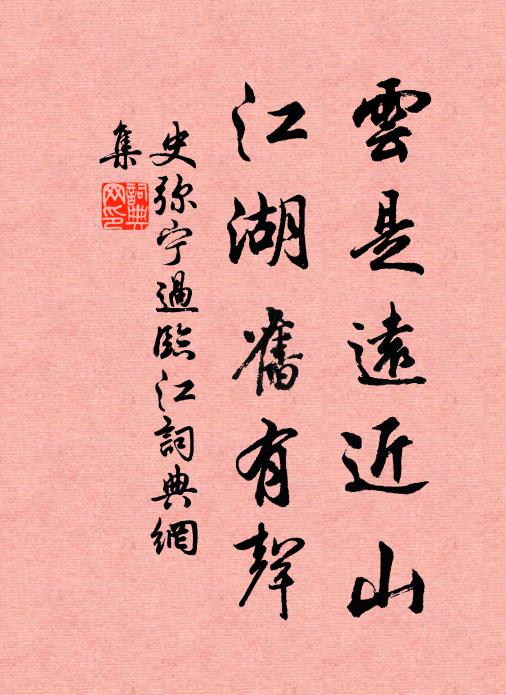 雲是遠近山
江湖舊有聲
史弥宁過臨江詞典網
集
詞典網印